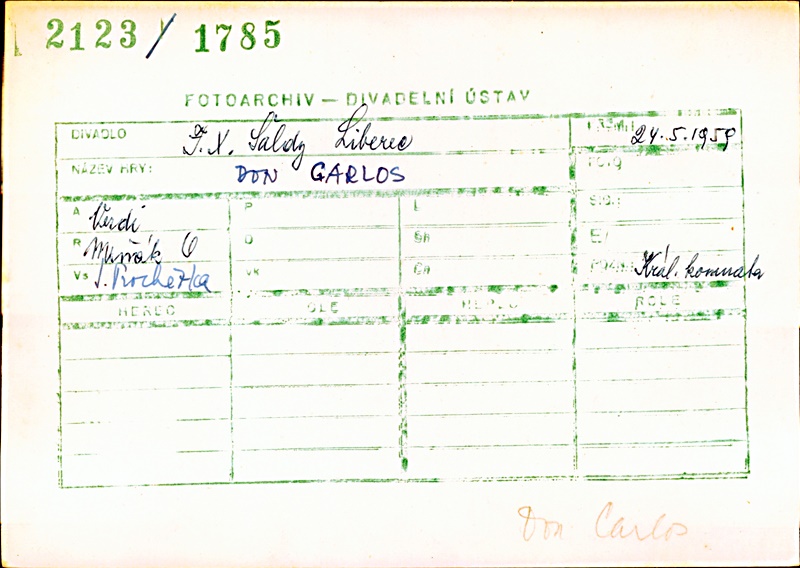 2123/1785
FOTOARCHIV — DIVADELNÍ ÚSTAV
DIVADLO F. X. Šaldy Liberec 24.5.1959
NÁZEV HRY: DON CARLOS
A Verdi P L S.Dr.
R O Sh E/
Vs J. Procházka Vk Ch Král. komnata
HEREC ROLE HEREC ROLE
Don Carlos